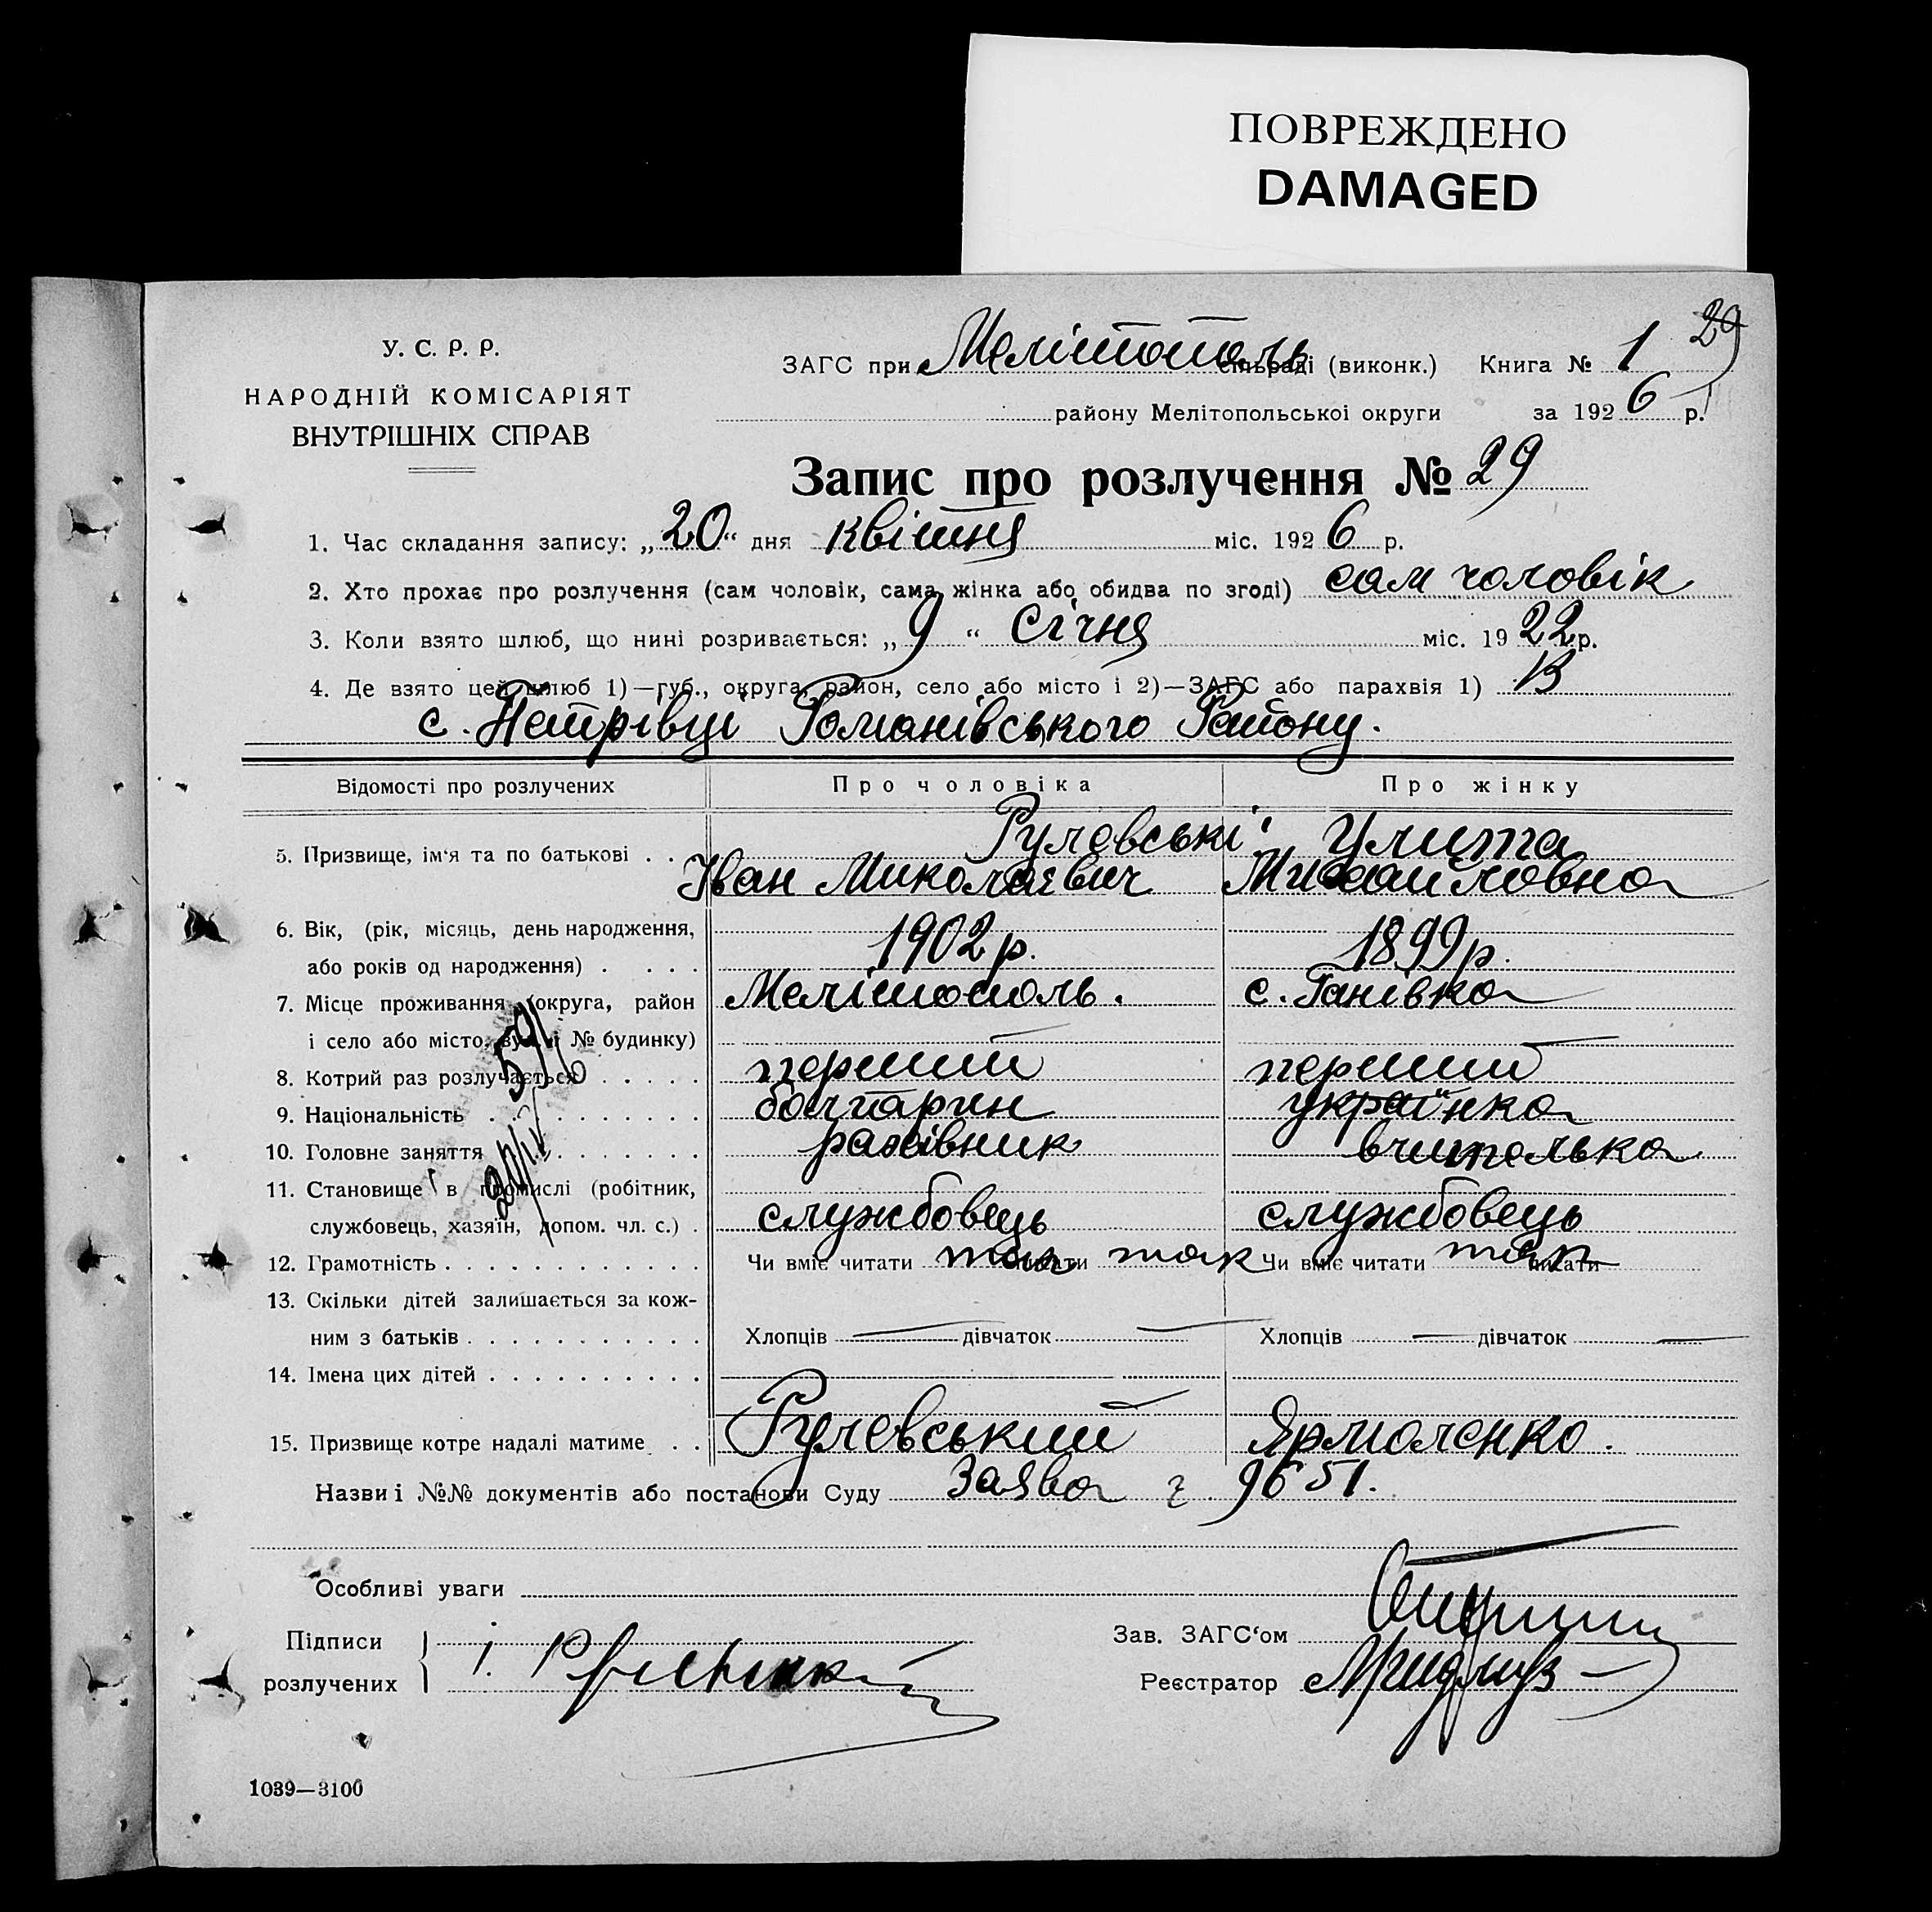 ПОВРЕЖДЕНО
DAMAGED
29
У. С. Р. Р.
НАРОДНІЙ КОМІСАРІЯТ
ВНУТРІШНІХ СПРАВ
ЗАГС при Мелітополь сільраді (виконк.) Книга № 1
району Мелітопольської округи за 1926 р.
Запис про розлучення № 29
1. Час складання запису: „20“ дня квітня міс. 1926 р.
2. Хто прохає про розлучення (сам чоловік, сама жінка або обидва по згоді) сам чоловік
3. Коли взято шлюб, що нині розривається: „9“ Січня міс. 1922 р.
4. Де взято цей шлюб 1)—губ., округа, район, село або місто і 2)—ЗАГС або парахвія 1) В
с. Петрівці Романівського Району.
Відомості про розлучених Про чоловіка Про жінку
5. Призвище, ім‘я та по батькові . . Рулевські Улита
Іван Миколаєвич Михайловна
6. Вік, (рік, місяць, день народження, 1902 р. 1899 р.
або років од народження) . . . .
7. Місце проживання (округа, район Мелітополь. с. Ганівка
і село або місто, вул. і № будинку)
8. Котрий раз розлучається . . . . . перший перший
9. Національність . . . . . . . . . болгарин українка
10. Головне заняття . . . . . . . . вчителька
11. Становище в промислі (робітник,
службовець, хазяїн, допом. чл. с.) . службовець службовець
12. Грамотність . . . . . . . . . . . . Чи вміє читати так писати так Чи вміє читати так писати
13. Скільки дітей залишається за кож-
ним з батьків . . . . . . . . . . . Хлопців — дівчаток — Хлопців — дівчаток —
14. Імена цих дітей . . . . . . . . . .
15. Призвище котре надалі матиме . . Рулевський Ярмоленко.
Назви і №№ документів або постанови Суду Заява ч. 9651.
Особливі уваги
Підписи
розлучених
І.
Зав. ЗАГС‘ом
Реєстратор
1039—3100